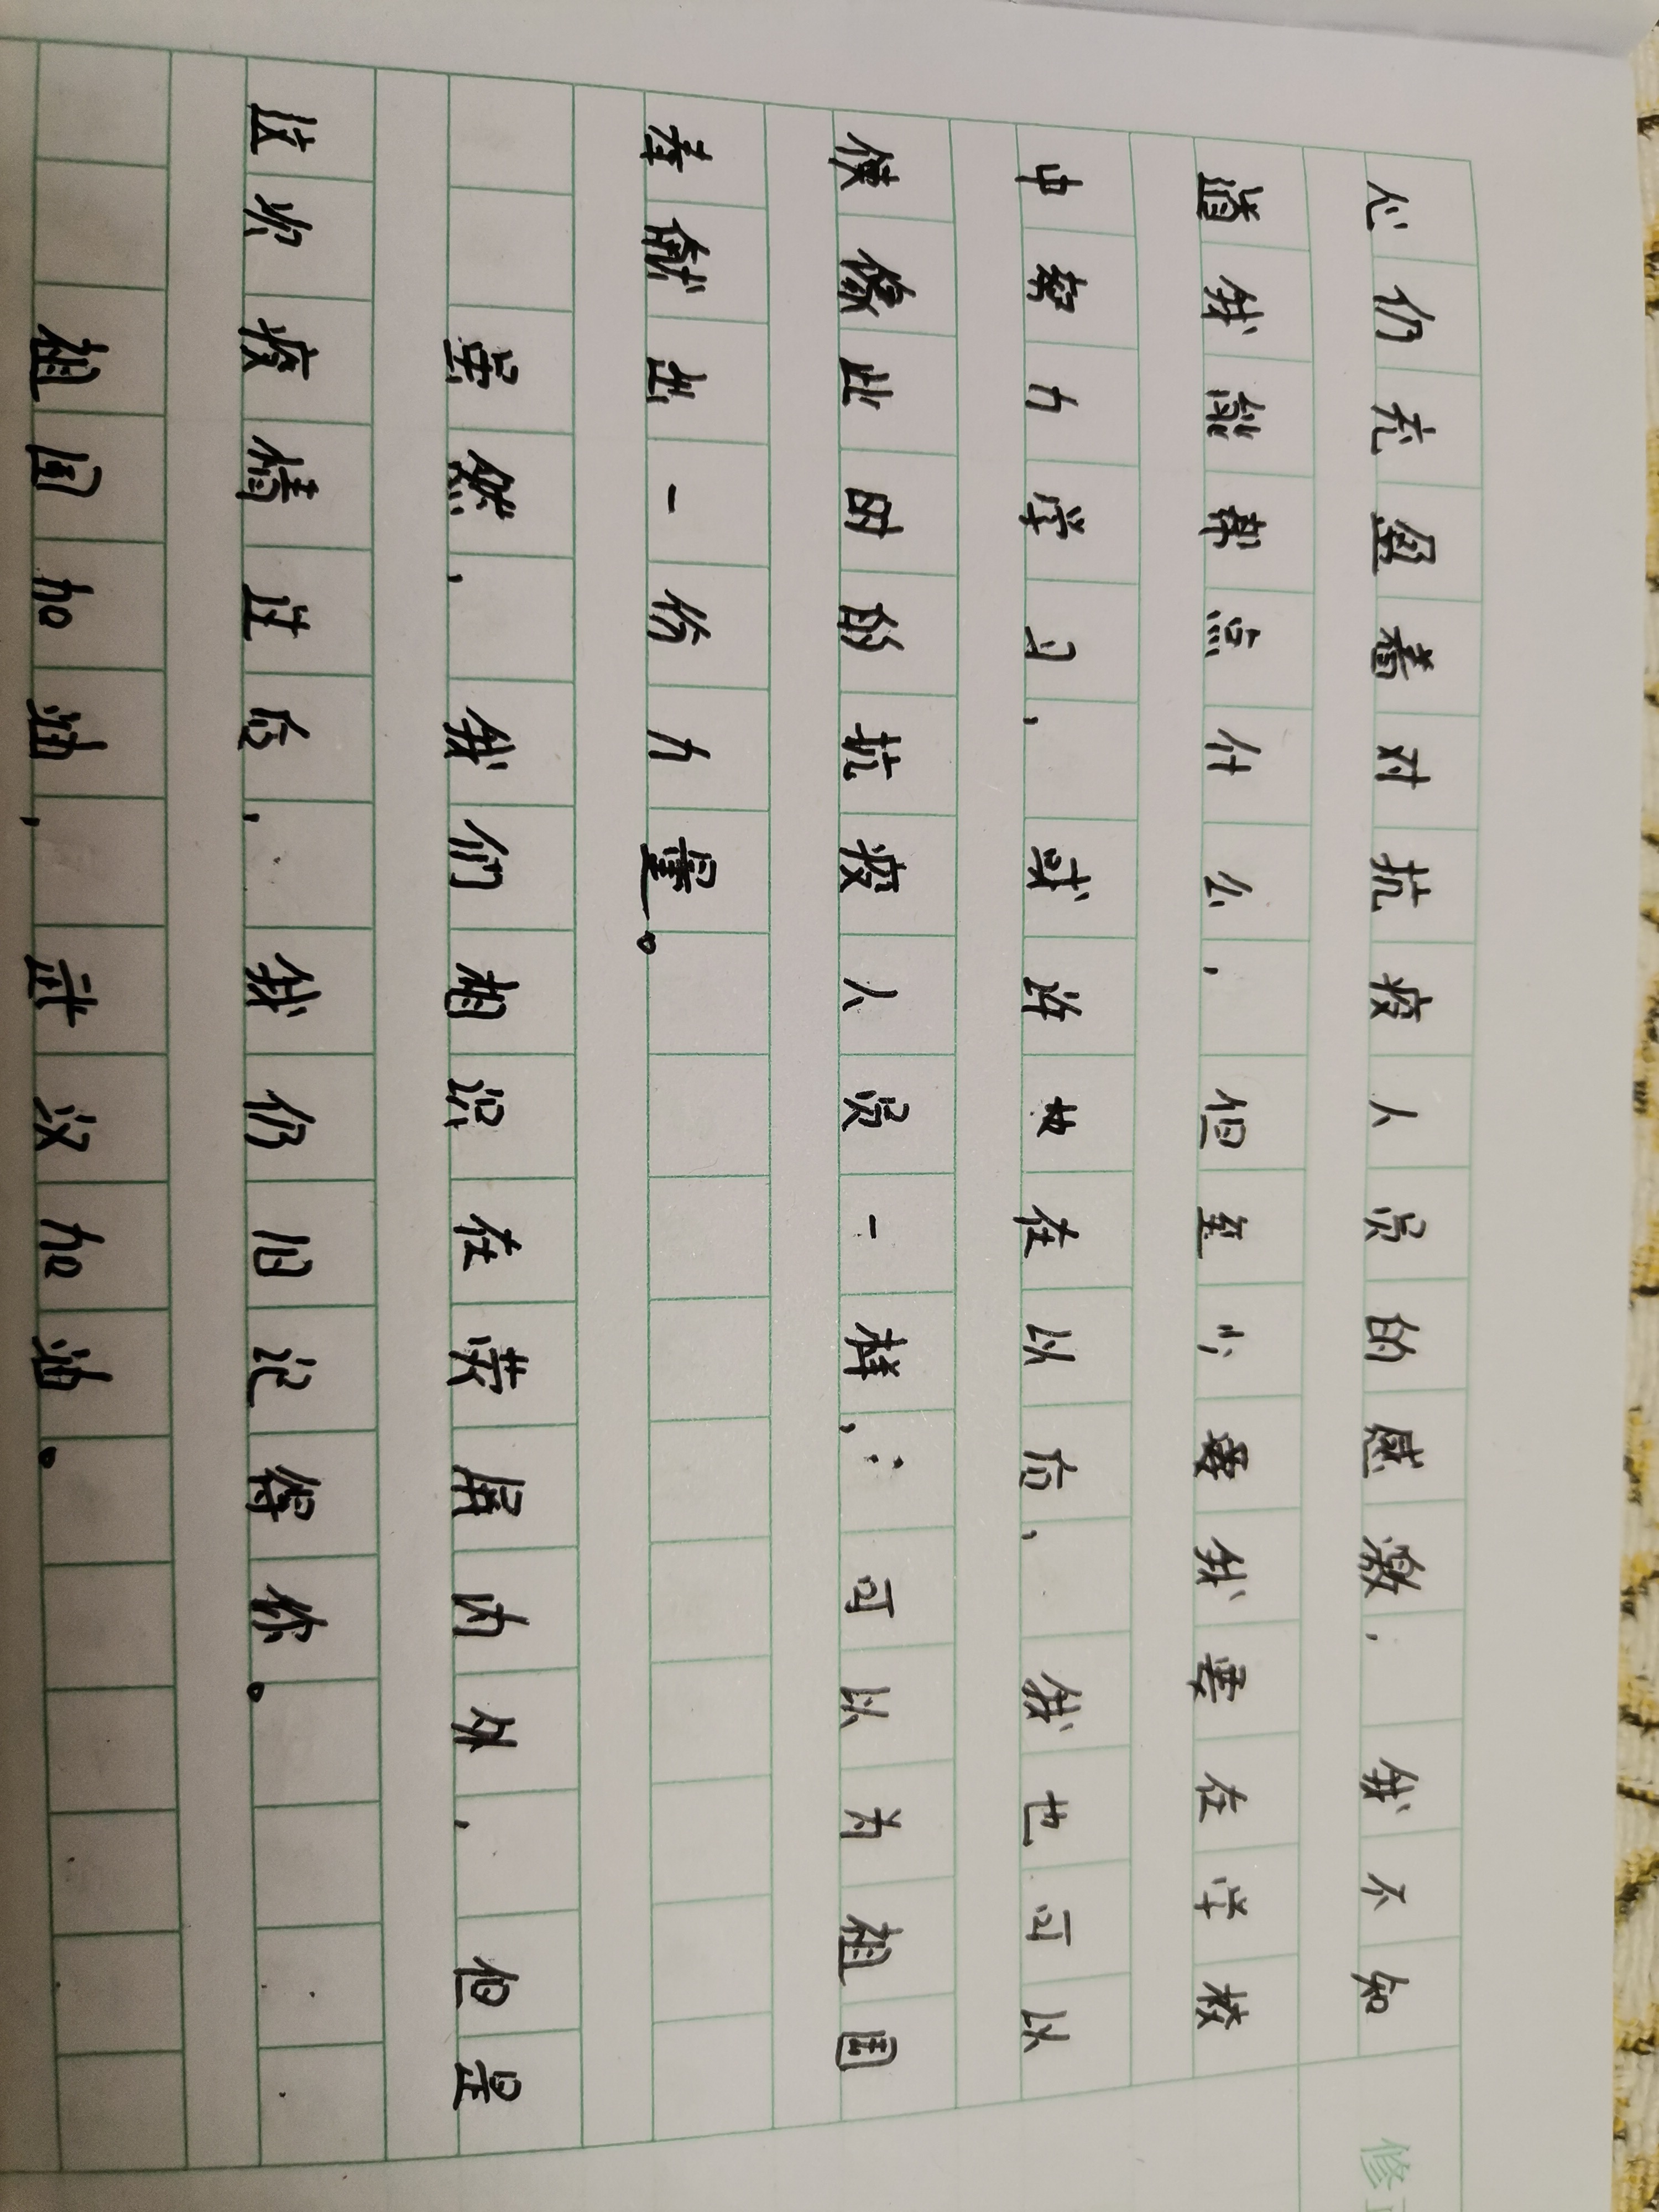 心仍充盈着对抗疫人员的感激，我不知
道我能帮点什么，但至少要我要在学校
中努力学习，或许在以后，我也可以
使像此时的抗疫人员一样，可以为祖国
奉献出一份力量。
虽然，我们相识在荧屏内外，但是
这次疫情过后，我仍旧记得你。
祖国加油，武汉加油。
修